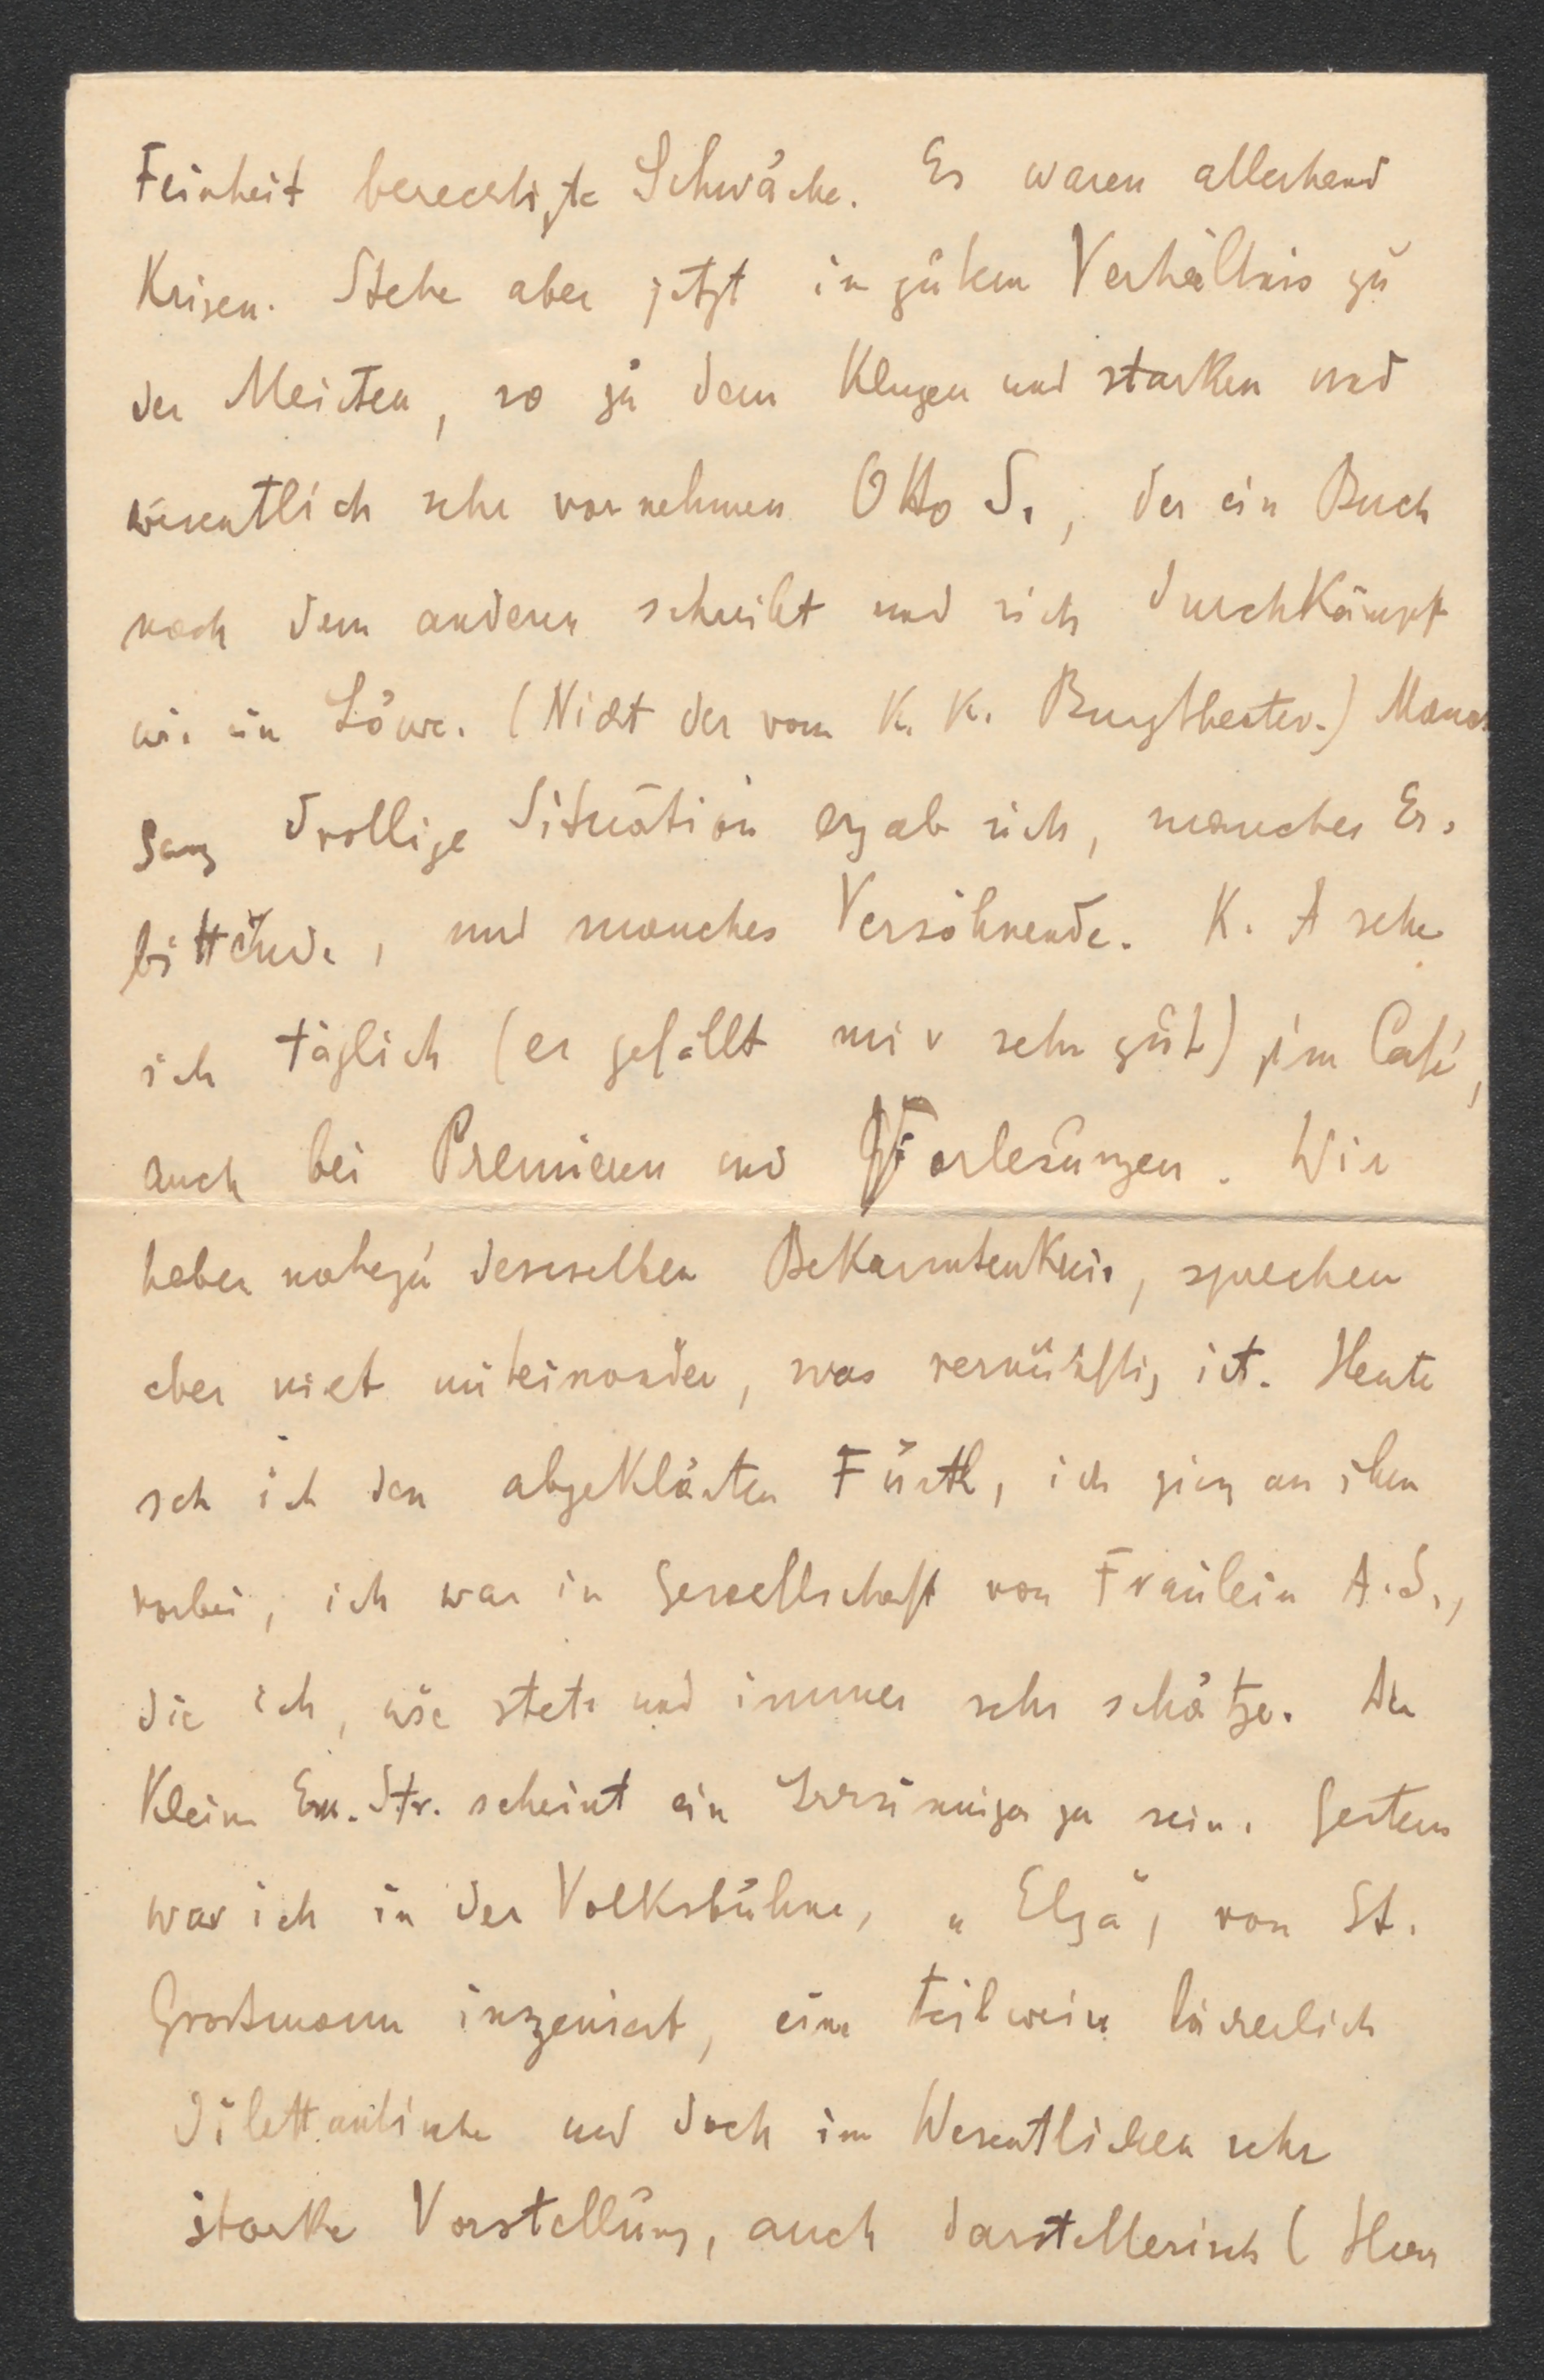 Feinheit berechtigte Schwäche. Es waren allerhand
Krisen. Stehe aber jetzt in gutem Verhältnis zu
den Meisten, so zu dem klugen und starken und
wesentlich sehr vornehmen Otto S., der ein Buch
nach dem anderen schreibt und sich durchkämpft
wie ein Löwe. (Nicht der vom K. K. Burgtheater.) Manch
ganz drollige Situation ergab sich, manches Er-
bitternde, und manches Versöhnende. K. A sehe
ich täglich (er gefällt mir sehr gut) im Café,
auch bei Premieren und Vorlesungen. Wir
haben nahezu denselben Bekanntenkreis, sprechen
aber nicht miteinander, was vernünftig ist. Heute
sah ich den abgeklärten Fürth, ich ging an ihm
vorbei, ich war in Gesellschaft von Fräulein A. S.,
die ich, wie stets und immer sehr schätze. Der
kleine Em. Str. scheint ein Irrsinniger zu sein. Gestern
war ich in der Volksbühne, „Elga", von St.
Grossmann inszeniert, eine teilweise lächerlich
dilettantische und doch im Wesentlichen sehr
starke Vorstellung, auch darstellerisch (Herr